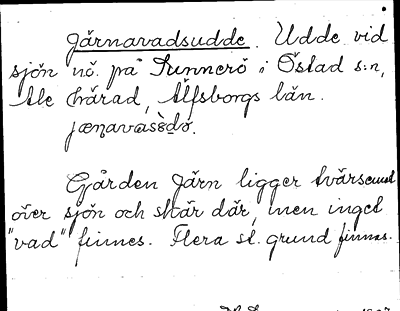 Järnavadsudde. Udde vid
sjön nö. på Sunnerö i Östad s:n,
Ale härad, Älfsborgs län.
jæṇavasèdə.
Gården Järn ligger tvärsemot
över sjön och skär där, men inget
"vad" finnes. Flera st. grund finnas.